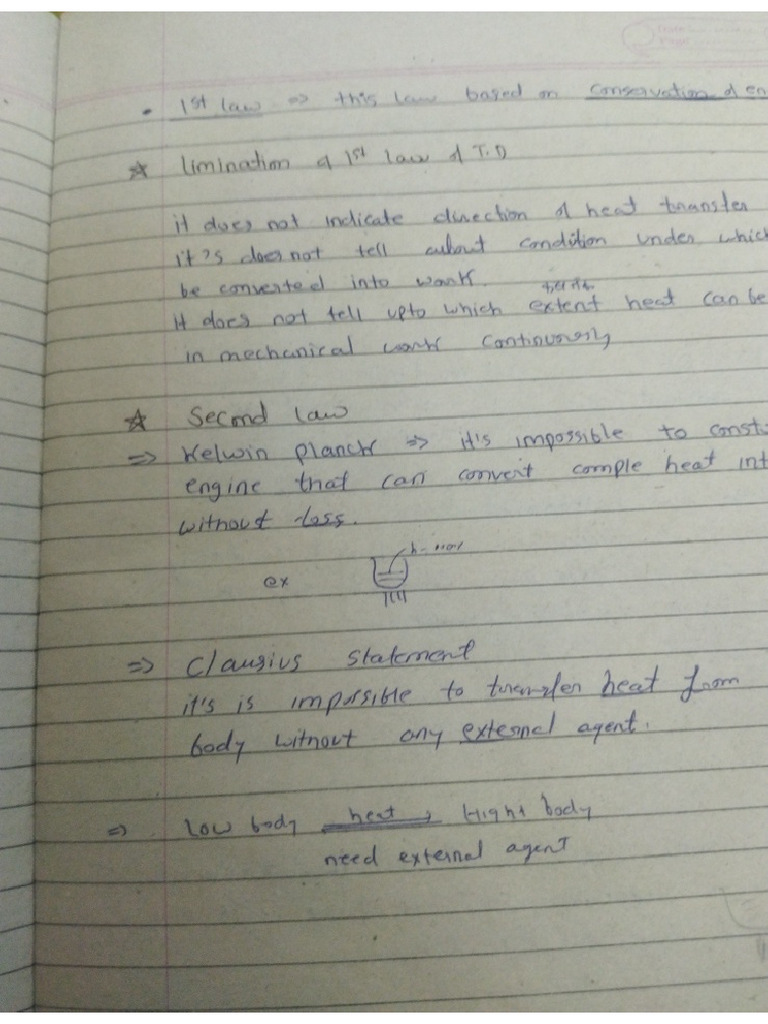 • 1st law => this law based on conservation of en
☆ Limination of 1st law of T.D
it does not indicate direction of heat transfer
it's does not tell about condition under which
be converted into work.
it does not tell upto which extent heat can be
in mechanical work continuously
☆ Second law
=> Kelwin planck => it's impossible to const
engine that can convert comple heat int
without loss.
ex
=> Clausius statement
it's is impossible to transfer heat from
body without any external agent.
=> Low body heat → Hight body
need external agent